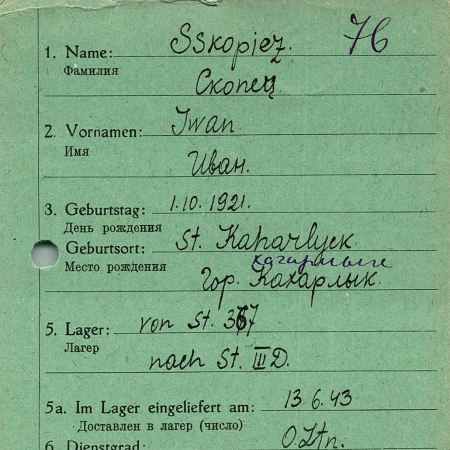 76
1. Name: Sskopjez.
Фамилия Скопец
2. Vornamen: Iwan
Имя Иван.
3. Geburtstag: 1.10.1921.
День рождения
Geburtsort: St. Kaharlyck
Место рождения
Гор. Кахарлык.
5. Lager: von St. 367
Лагер
nach St. III D.
5a. Im Lager eingeliefert am: 13.6.43
Доставлен в лагер (число)
6. Dienstgrad: O.Ltn.